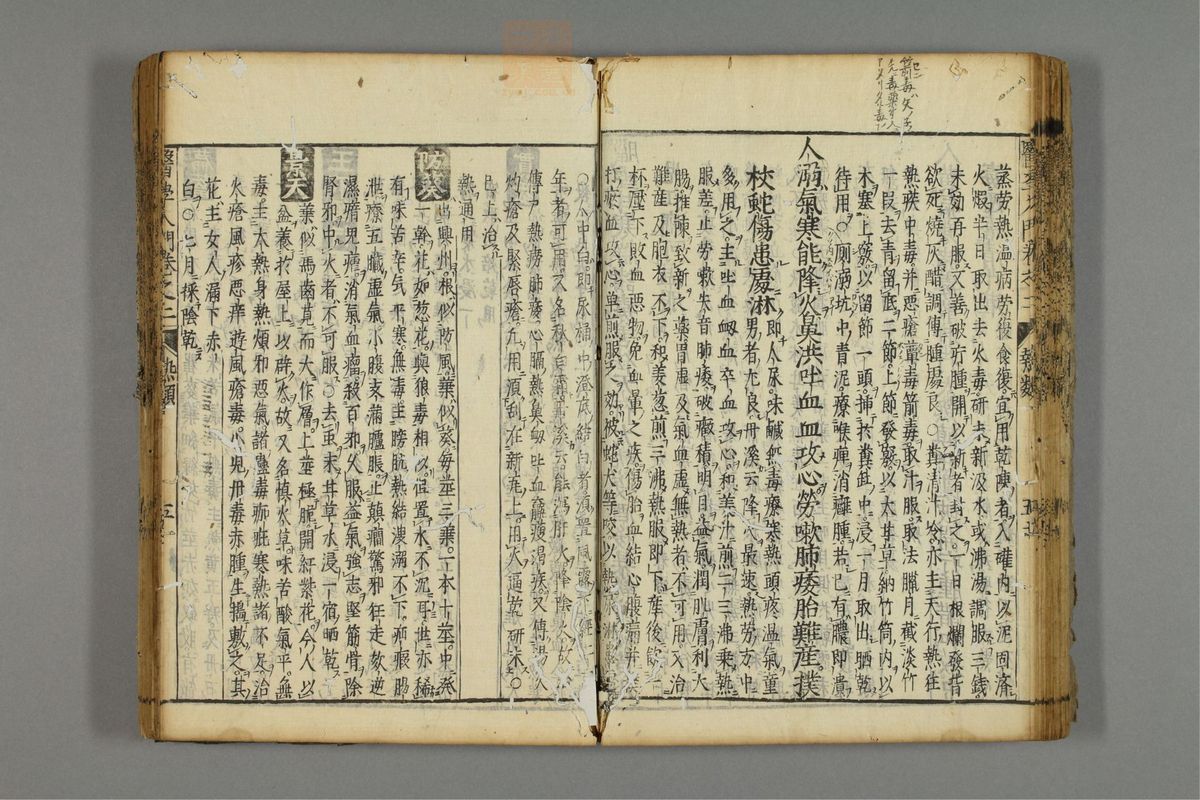 蒸勞熱溫病勞復食復宜用乾陳者入確內以泥固濟
火煅半日取出去火毒研末新汲水或沸湯調服三錢
未効再服又善破疔腫開以新者封之一日根爛發昔
欲死燒灰醋調傅腫處良○糞清汁冷亦主天行熱狂
熱疾中毒并惡瘡蕈毒箭毒取汁服取法臘月截淡竹
一段去青留底二節上節發竅以大甘草納竹筒內以
木塞上竅以留節一頭揷糞缸中浸一月取出晒乾
待用○厠溺坑中青泥療喉痺消癰腫若已有膿即潰
人溺氣寒能降火鼻洪吐血血攻心勞嗽肺痿胎難產撲
杖蛇傷患處淋 即人尿味鹹無毒療寒熱頭疼溫氣童
男者尤良丹溪云降火最速熱勞方中
多用之主吐血衄血卒血攻心和姜汁煎二三沸乘熱
服差止勞嗽失音肺痿破癥積明目益氣潤肌膚利大
腸推陳致新之藥胃虛及氣血虛無熱者不可用又治
難產及胞衣不下和姜葱煎二沸熱服即下產後飲一
杯壓下敗血惡物免血暈之疾傷胎血結心腹痛并
打瘀血攻心單煎服之効被蛇犬等咬以熱尿淋
人中白即尿桶中澄底結白者須置風露下經二
年者可用又名秋白能瀉肝火降陰火故
傅尸熱勞肺痿心膈熱鼻衄吐血羸瘦渴疾又傅湯火
灼瘡及緊唇瘡凡用須刮在新瓦上用火逼乾研末○
巳上治
熱通用
防葵 出興州根似防風葉似葵每莖三葉一本十莖中發
一幹花如葱花與狼毒相似但置水不沉耳世亦稀
有味苦辛氣平寒無毒主膀胱熱結溲溺不下疝瘕腸
泄療五臟虛氣小腹支滿臚脹止癲癇驚邪狂走欬逆
濕瘖兒癇消氣血瘤殺百邪久服益氣強志堅筋骨除
腎邪中火者不可服○去蚛末甘草水浸一宿晒乾
景天 葉似馬齒莧而大作層上莖極脆開紅紫花今人以
盆養於屋上以辟火故又名慎火草味苦酸氣平無
毒主大熱身熱煩邪惡氣諸蠱毒痂疕寒熱諸不足治
火瘡風疹惡痒遊風瘡毒小兒丹毒赤腫生搗敷之其
花主女人漏下赤
白○七月採陰乾
醫學入門卷之二 熱類 五